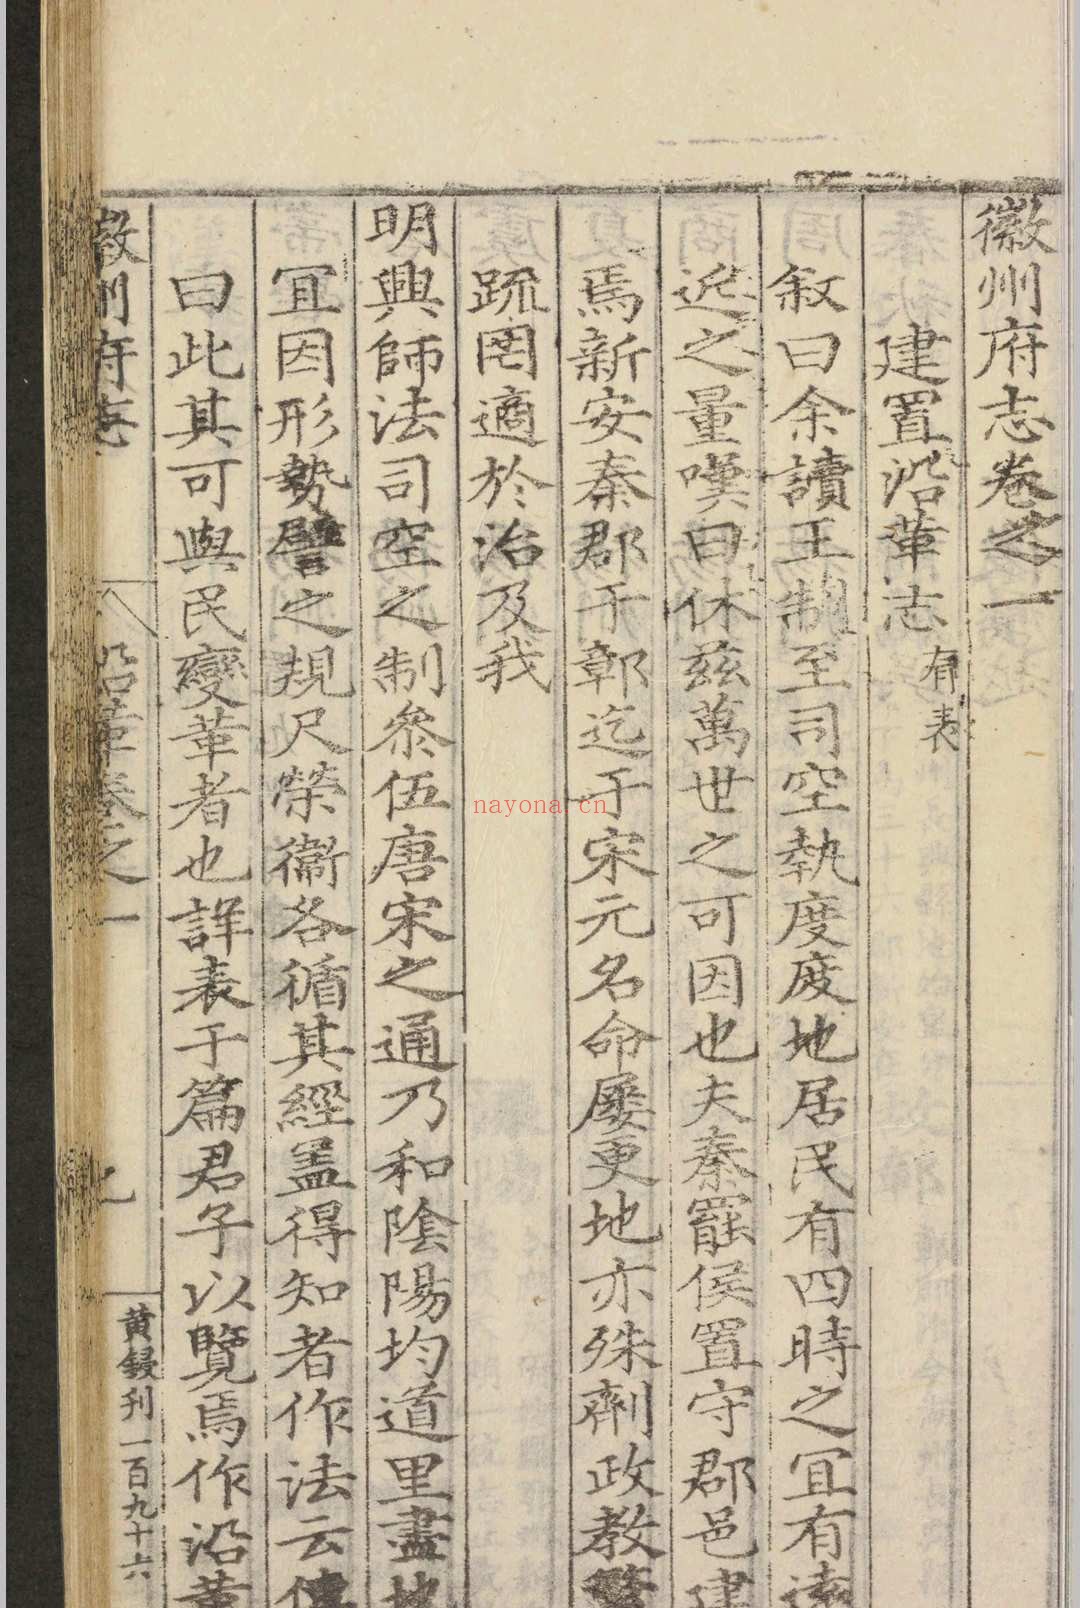 徽州府志卷之一
建置沿革志有表
叙曰余讀王制至司空執度度地居民有四時之冝有遠
近之量嘆曰休兹萬世之可因也夫秦罷侯置守郡邑建
焉新安秦郡于鄣迄于宋元名命屡更地亦殊劑政教
疏罔適於治及我
明興師法司空之制參伍唐宋之通乃和陰陽均道里盡地
冝因形勢譬之規尺榮衞各循其經盖得知者作法云傳
曰此其可與民變革者也詳表于篇君子以覽焉作沿革
徽州府志 沿革卷之一
黄鋑刊一百九十六
nayona cn